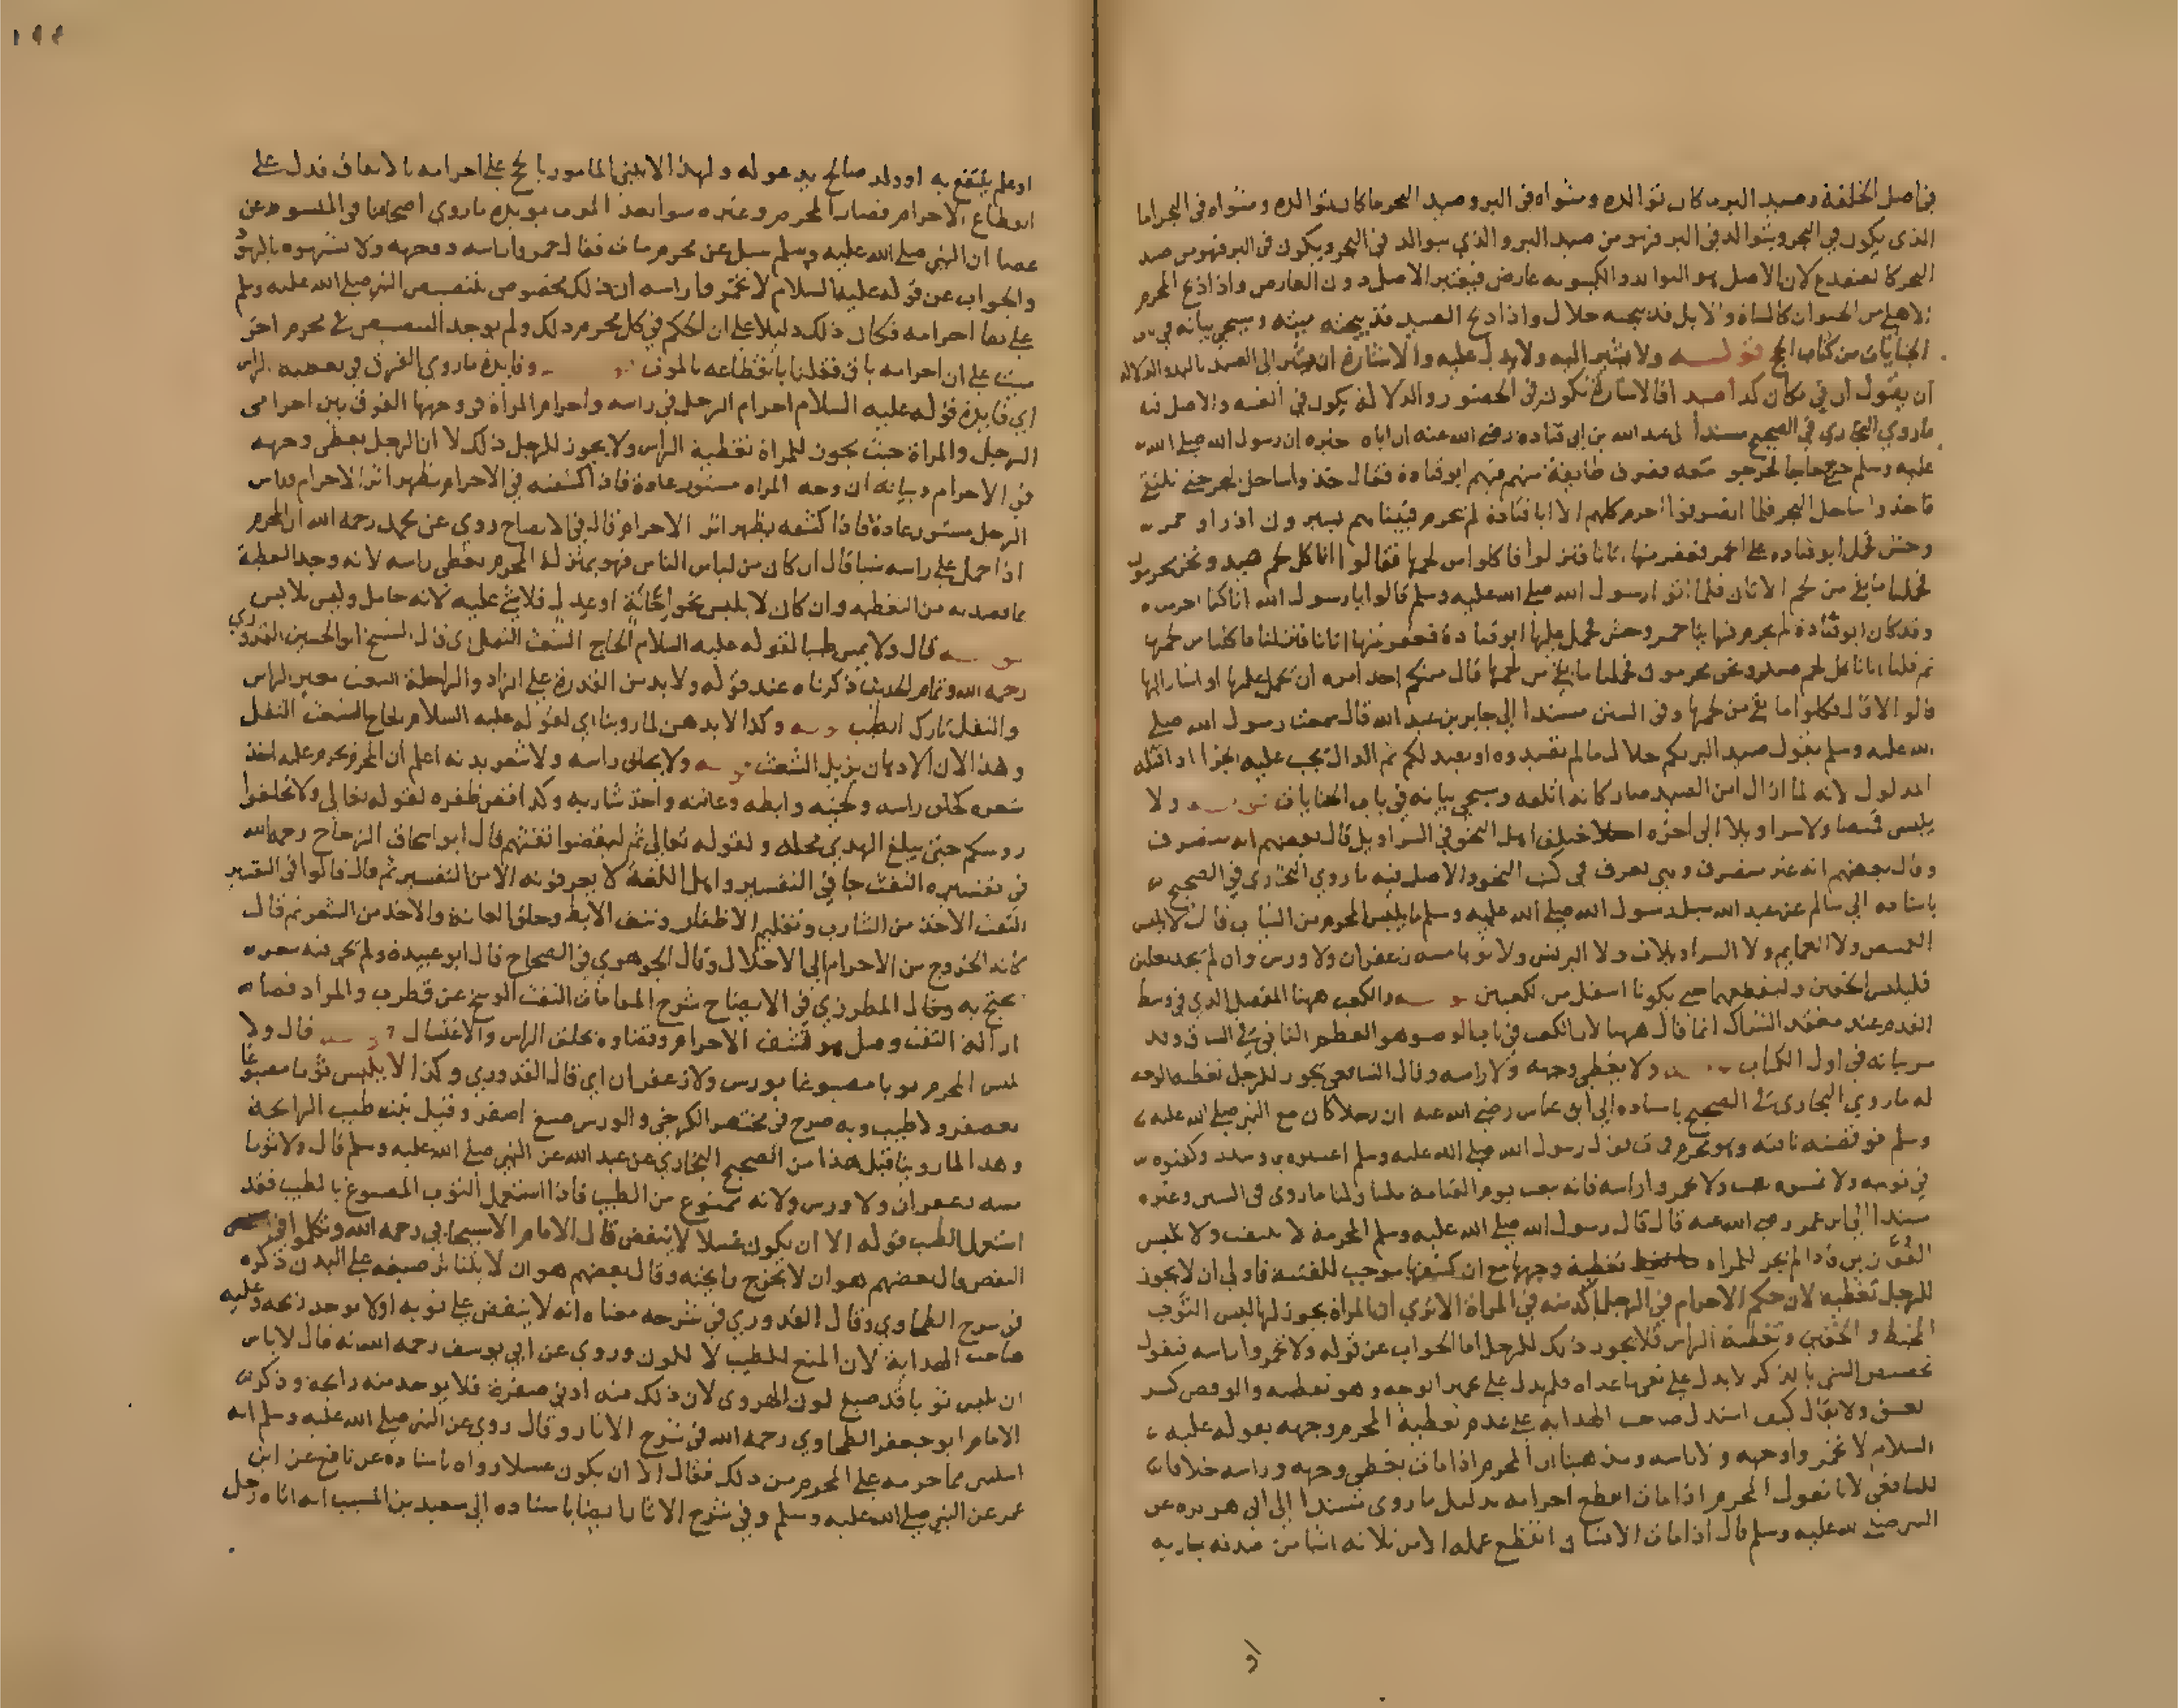 في اصل الخلقة وصيد البر ما كان توالده ومثواه في البر وصيد البحر ما كان توالده ومثواه في البحر اما
الذي يكون في البحر ويتوالد في البر فهو من صيد البر والذي يتوالد في البحر ويكون في البر فهو من صيد
البحر كالضفدع لان الاصل هو التوالد والكينونه عارض فيعتبر الاصل دون العارض واذا ذبح المحرم
الاهلي من الحيوان كالشاة والابل فذبيحته حلال واذا ذبح الصيد فذبيحته ميتة وسيجي بيانه في باب
الجنايات من كتاب الحج قوله ولا يشير اليه ولا يدل عليه والاشارة ان يشير الى الصيد باليد والدلالة
ان يقول ان في مكان كذا صيدا فالاشارة تكون في الحضور والدلالة يكون في الغيبة والاصل فيه
ما روى البخاري في الصحيح مسندا الى عبد الله بن ابي قتادة رضي الله عنه ان اباه خبره ان رسول الله صلى الله
عليه وسلم خرج حاجا فخرجو معه فصرف طايفة منهم فيهم ابو قتادة فقال خذوا ساحل البحر حتى نلتقي
فاخذوا ساحل البحر فلما انصرفوا احرم كلهم الا ابا قتادة لم يحرم فبينا هم يسيرون اذ راو حمر
وحش فحمل ابو قتاده على الحمر فعقر منها اتانا فنزلوا فاكلوا من لحمها فقالوا اناكل لحم صيد ونحن محرمون
فحملنا ما بقي من لحم الاتان فلما اتوا رسول الله صلى الله عليه وسلم قالوا يا رسول الله انا كنا احرمنا
وقد كان ابو قتادة لم يحرم فراينا حمر وحش فحمل عليها ابو قتادة فعقر منها اتانا فنزلنا فاكلنا من لحمها
ثم قلنا اناكل لحم صيد ونحن محرمون فحملنا ما بقي من لحمها قال منكم احد امره ان يحمل عليها او اشار اليها
قالوا لا قال فكلوا ما بقي من لحمها وفي السنن مسندا الى جابر بن عبد الله قال سمعت رسول الله صلى
الله عليه وسلم يقول صيد البر لكم حلال ما لم تصيدوه او يصيد لكم ثم الدال يجب عليه الجزا اذا قتله
المدلول لانه لما ازال امن الصيد صار كانه اتلفه وسيجي بيانه في باب الجنايات قوله ولا
يلبس قميصا ولا سراويلا الى اخره اختلف اهل النحو في السراويل قال بعضهم انه منصرف
وقال بعضهم انه غير منصرف وهي تعرف في كتب النحو والاصل فيه ما روى البخاري في الصحيح
باسناده الى سالم عن عبد الله سيل رسول الله صلى الله عليه وسلم ما يلبس المحرم من الثياب قال لا يلبس
القميص ولا العمايم ولا السراويلات ولا البرنس ولا ثوبا مسه زعفران ولا ورس وان لم يجد نعلين
فليلبس الخفين وليقطعهما حتى يكونا اسفل من الكعبين قوله والكعب ههنا المفصل الذي في وسط
القدم عند معقد الشراك انما قال ههنا لان الكعب في باب الوضو هو العظم الناتي في الساق وقد
مر بيانه في اول الكتاب قوله ولا يغطي وجهه ولا راسه وقال الشافعي يجوز للرجل تغطيه الوجه
له ما روى البخاري في الصحيح باسناده الى ابن عباس رضي الله عنه ان رجلا كان مع النبي صلى الله عليه
وسلم فوقصته ناقته وهو محرم فمات فقال رسول الله صلى الله عليه وسلم اغسلوه بماء وسدر وكفنوه
في ثوبيه ولا تمسوه بطيب ولا تخمروا راسه فانه يبعث يوم القيامة ملبيا ولنا ما روى في السنن وغيره
مسندا الى ابن عمر رضي الله عنه قال قال رسول الله صلى الله عليه وسلم المحرمة لا تنتقب ولا تلبس
القفازين واذا لم يجز للمراه تغطية وجهها مع ان كشفها موجب للفتنة فاولى ان لا يجوز
للرجل تغطيه لان حكم الاحرام في الرجل اكد منه في المراة الا ترى ان المراة يجوز لها لبس الثوب
المخيط والخفين وتغطية الراس فلا يجوز ذلك للرجل اما الجواب عن قوله ولا تخمروا راسه فنقول
تخصيص الشي بالذكر لا يدل على نفي ما عداه فلم يدل على تخمير الوجه وهو تغطيته والوقص كسر
العنق ولا يقال كيف استدل صاحب الهدايه على عدم تغطية المحرم وجهه بقوله عليه
السلام لا تخمروا وجهه ولا راسه ومذهبنا ان المحرم اذا مات يغطى وجهه وراسه خلافا
للشافعي لانا نقول المحرم اذا مات انقطع احرامه بدليل ما روى مسندا الى ابي هريره عن
النبي صلى الله عليه وسلم قال اذا مات الانسان انقطع عمله الا من ثلاثه اشيا من صدقه جاريه
او
١٩٩
او علم ينتفع به او ولد صالح يدعو له ولهذا لا يبني المامور بالحج على احرامه بالاتفاق فدل على
انقطاع الاحرام فصار المحرم وغيره سوا بعد الموت يويده ما روى اصحابنا في المبسوط عن
عطا ان النبي صلى الله عليه وسلم سيل عن محرم مات فقال خمروا راسه ووجهه ولا تشبهوه باليهود
والجواب عن قوله عليه السلام لا تخمروا راسه ان ذلك مخصوص بتنصيص النبي صلى الله عليه وسلم
على بقا احرامه فكان ذلك دليلا على ان الحكم في كل محرم ذلك ولم يوجد التنصيص في محرم اخر
ميت على ان احرامه باق فقلنا بانقطاعه بالموت قوله وفايدة ما روى الفرق في تغطيه الراس
اي فايدة قوله عليه السلام احرام الرجل في راسه واحرام المراة في وجهها الفرق بين احرامي
الرجل والمراة حيث يجوز للمراة تغطية الراس ولا يجوز للرجل ذلك لا ان الرجل يغطي وجهه
في الاحرام وبيانه ان وجه المراه مستور عادة فاذا كشفته في الاحرام يظهر اثر الاحرام وراس
الرجل مستور عادة فاذا كشفه يظهر اثر الاحرام قال في الايضاح روى عن محمد رحمه الله ان المحرم
اذا حمل على راسه شيا قال ان كان من لباس الناس فهو بمنزلة المحرم يغطي راسه لانه وجد التغطية
بما يقصد به من التغطيه وان كان لا يلبس نحو اجانة او عدل فلا شي عليه لانه حامل وليس بلابس
قوله قال ولا يمس طيبا لقوله عليه السلام الحاج الشعث التفل اي قال الشيخ ابو الحسين القدوري
رحمه الله وتمام الحديث ذكرناه عند قوله ولا بد من القدرة على الزاد والراحلة الشعث مغبر الراس
والتفل تارك الطيب قوله وكذا لا يدهن لما روينا اي لقوله عليه السلام الحاج الشعث التفل
وهذا لان الادهان يزيل الشعث قوله ولا يحلق راسه ولا شعر بدنه اعلم ان المحرم يحرم عليه اخذ
شعره كحلق راسه ولحيته وابطه وعانته واخذ شاربه وكذا قص ظفره لقوله تعالى ولا تحلقوا
روسكم حتى يبلغ الهدي محله ولقوله تعالى ثم ليقضوا تفثهم قال ابو اسحاق الزجاج رحمه الله
في تفسيره التفث جا في التفسير واهل اللغة لا يعرفونه الا من التفسير ثم قال قالوا في التفسير
التفث الاخذ من الشارب وتقليم الاظفار ونتف الابط وحلق العانة والاخذ من الشعر ثم قال
كانه الخروج من الاحرام الى الاحلال وقال الجوهري في الصحاح قال ابو عبيدة ولم يجي فيه شعر
يحتج به وقال المطرزي في الايضاح شرح المقامات التفث الوسخ عن قطرب والمراد قضا
ازالة التفث وقيل هو قشف الاحرام وقضاوه بحلق الراس والاغتسال قوله قال ولا
يلبس المحرم ثوبا مصبوغا بورس ولا زعفران اي قال القدوري وكذا لا يلبس ثوبا مصبوغا
بعصفر ولا طيب وبه صرح في مختصر الكرخي والورس صبغ اصفر وقيل نبت طيب الرايحة
وهذا لما روينا قبل هذا من الصحيح البخاري عن عبد الله عن النبي صلى الله عليه وسلم قال ولا ثوبا
مسه زعفران ولا ورس ولانه ممنوع من الطيب فاذا استعمل الثوب المصبوغ بالطيب فقد
استعمل الطيب قوله الا ان يكون غسيلا لا ينفض قال الامام الاسبيجابي رحمه الله وتكلموا في
النفض قال بعضهم هو ان لا يخرج رايحته وقال بعضهم هو ان لا يتناثر صبغه على البدن ذكره
في شرح الطحاوي وقال القدوري في شرحه معناه انه لا ينفض على ثوبه او لا يوجد ريحه وعليه
صاحب الهداية لان المنع للطيب لا للون وروي عن ابي يوسف رحمه الله انه قال لا باس
ان يلبس ثوبا قد صبغ لون الهروي لان ذلك منه ادنى صفرة فلا يوجد منه رايحة وذكر
الامام ابو جعفر الطحاوي رحمه الله في شرح الاثار وقال روي عن النبي صلى الله عليه وسلم انه
استثنى مما حرمه على المحرم من ذلك فقال الا ان يكون غسيلا رواه باسناده عن نافع عن ابن
عمر عن النبي صلى الله عليه وسلم وفي شرح الاثار ايضا باسناده الى سعيد بن المسيب انه اتاه رجل